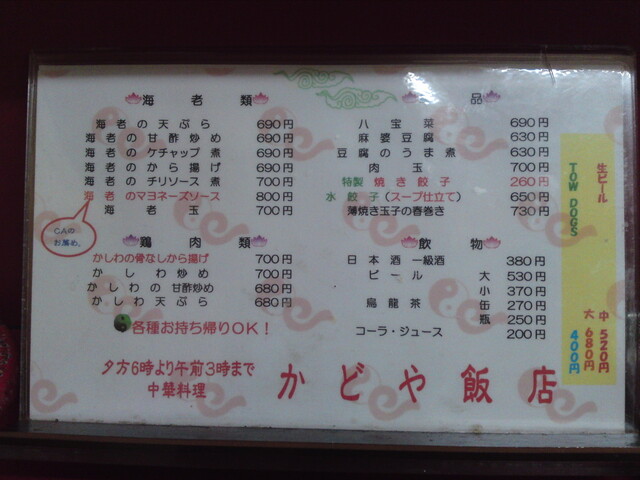 海老類
海老の天ぷら 690円
海老の甘酢炒め 690円
海老のケチャップ煮 690円
海老のから揚げ 690円
海老のチリソース煮 700円
海老のマヨネーズソース 800円
海老玉 700円
お薦め。
鶏肉類
かしわの骨なしから揚げ 700円
かしわ炒め 700円
かしわの甘酢炒め 680円
かしわ天ぷら 680円
各種お持ち帰りOK!
夕方6時より午前3時まで
中華料理
品
八宝菜 690円
麻婆豆腐 630円
豆腐のうま煮 630円
肉玉 700円
特製 焼き餃子 260円
水餃子(スープ仕立て) 650円
薄焼き玉子の春巻き 730円
飲物
日本酒 一級酒 380円
ビール 大 530円
小 370円
烏龍茶 缶 270円
瓶 250円
コーラ・ジュース 200円
かどや飯店
生ビール
中 520円
大 680円
TOW DOGS
400円